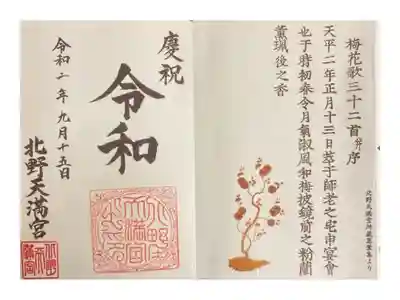 梅花歌三十二首并序
天平二年正月十三日萃于師老之宅申宴會
也于時初春令月氣淑風和梅披鏡前之粉蘭
薫珮後之香
北野天満宮所蔵萬葉集より
慶祝
令和
令和二年九月十五日
北野天満宮